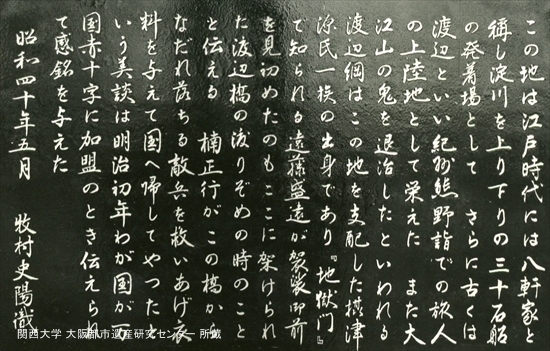 この地は江戸時代には八軒家と
称し淀川を上り下りの三十石船
の発着場として さらに古くは
渡辺といい紀州熊野詣での旅人
の上陸地として栄えた また大
江山の鬼を退治したといわれる
渡辺綱はこの地を支配した摂津
源氏一族の出身であり『地獄門』
で知られる遠藤盛遠が袈裟御前
を見初めたのもここに架けられ
た渡辺橋の渡りぞめの時のこと
と伝える 楠正行がこの橋から
なだれ落ちる敵兵を救いあげ衣
料を与えて国へ帰してやったと
いう美談は明治初年わが国が万
国赤十字に加盟のとき伝えられ
て感銘を与えた
昭和四十年五月 牧村史陽識
関西大学 大阪都市遺産研究センター 所蔵